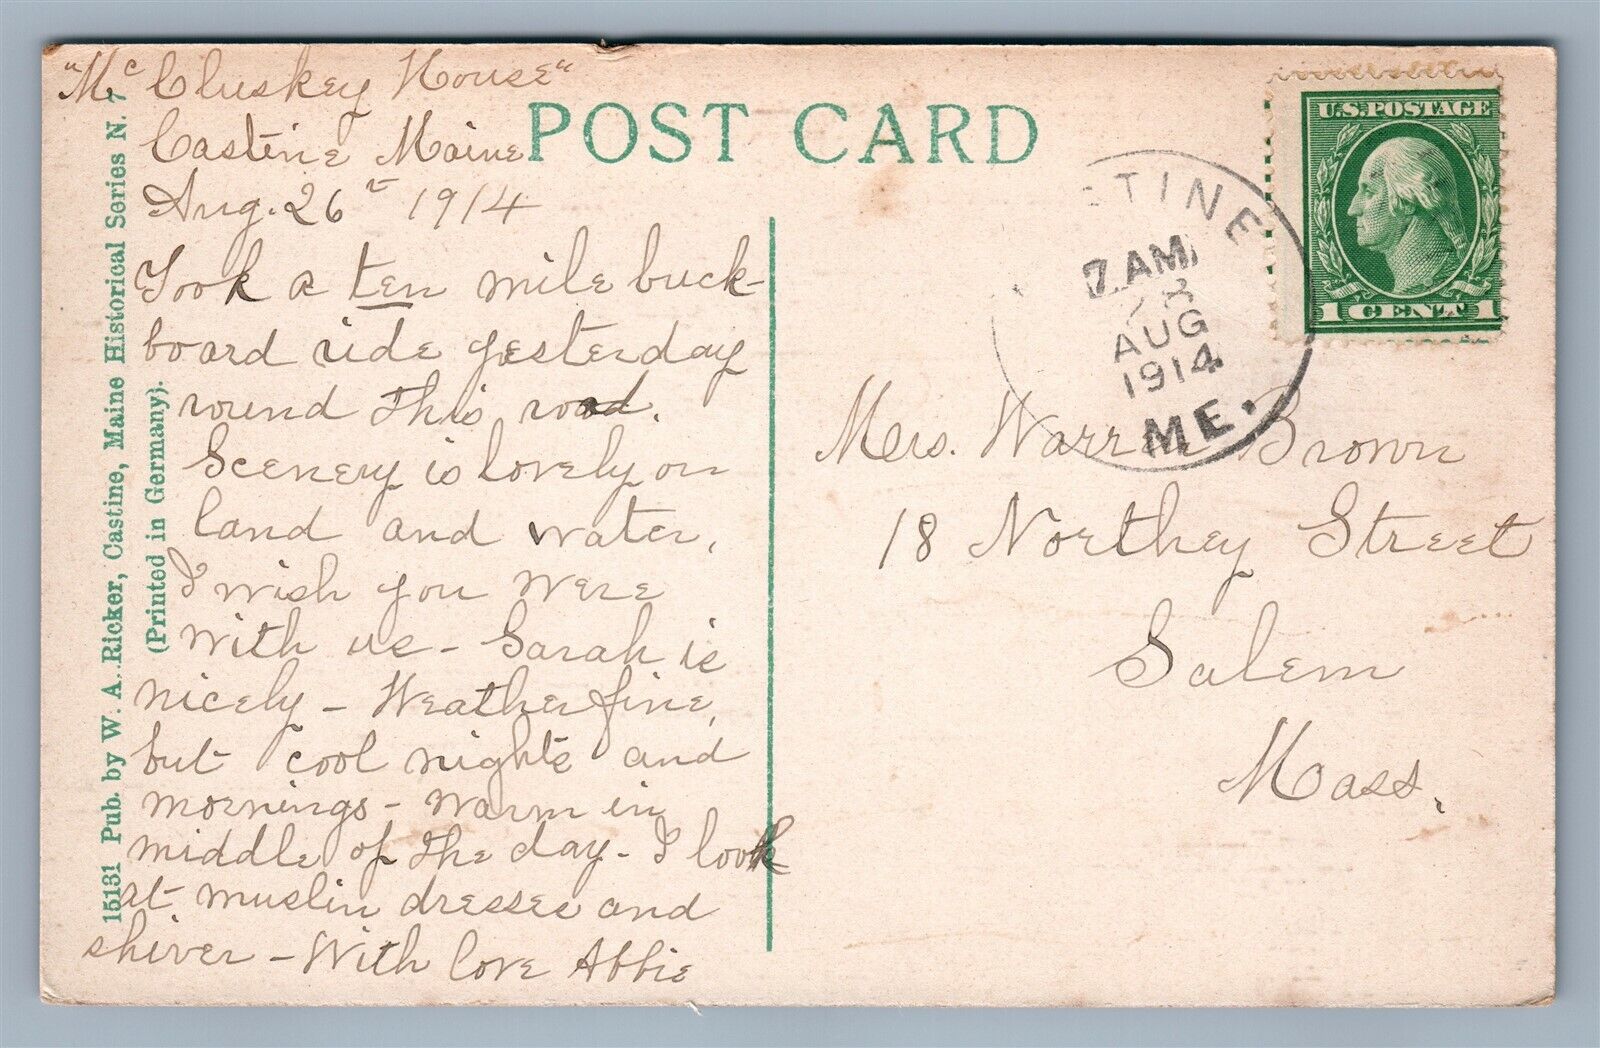 "McCluskey House"
Castine Maine
Aug. 26th 1914
Took a ten mile buck-
board ride yesterday
round this road.
Scenery is lovely on
land and water.
I wish you were
with us - Sarah is
nicely - Weather fine,
but cool nights and
mornings - warm in
middle of the day - I look
at muslin dresses and
shiver - With love Abbie
15131 Pub. by W. A. Ricker, Castine, Maine Historical Series N. 7
(Printed in Germany).
POST CARD
U.S. POSTAGE
1 CENT 1
STINE
7 AM
28
AUG
1914
ME.
Mrs. Warren Brown
18 Northey Street
Salem
Mass.